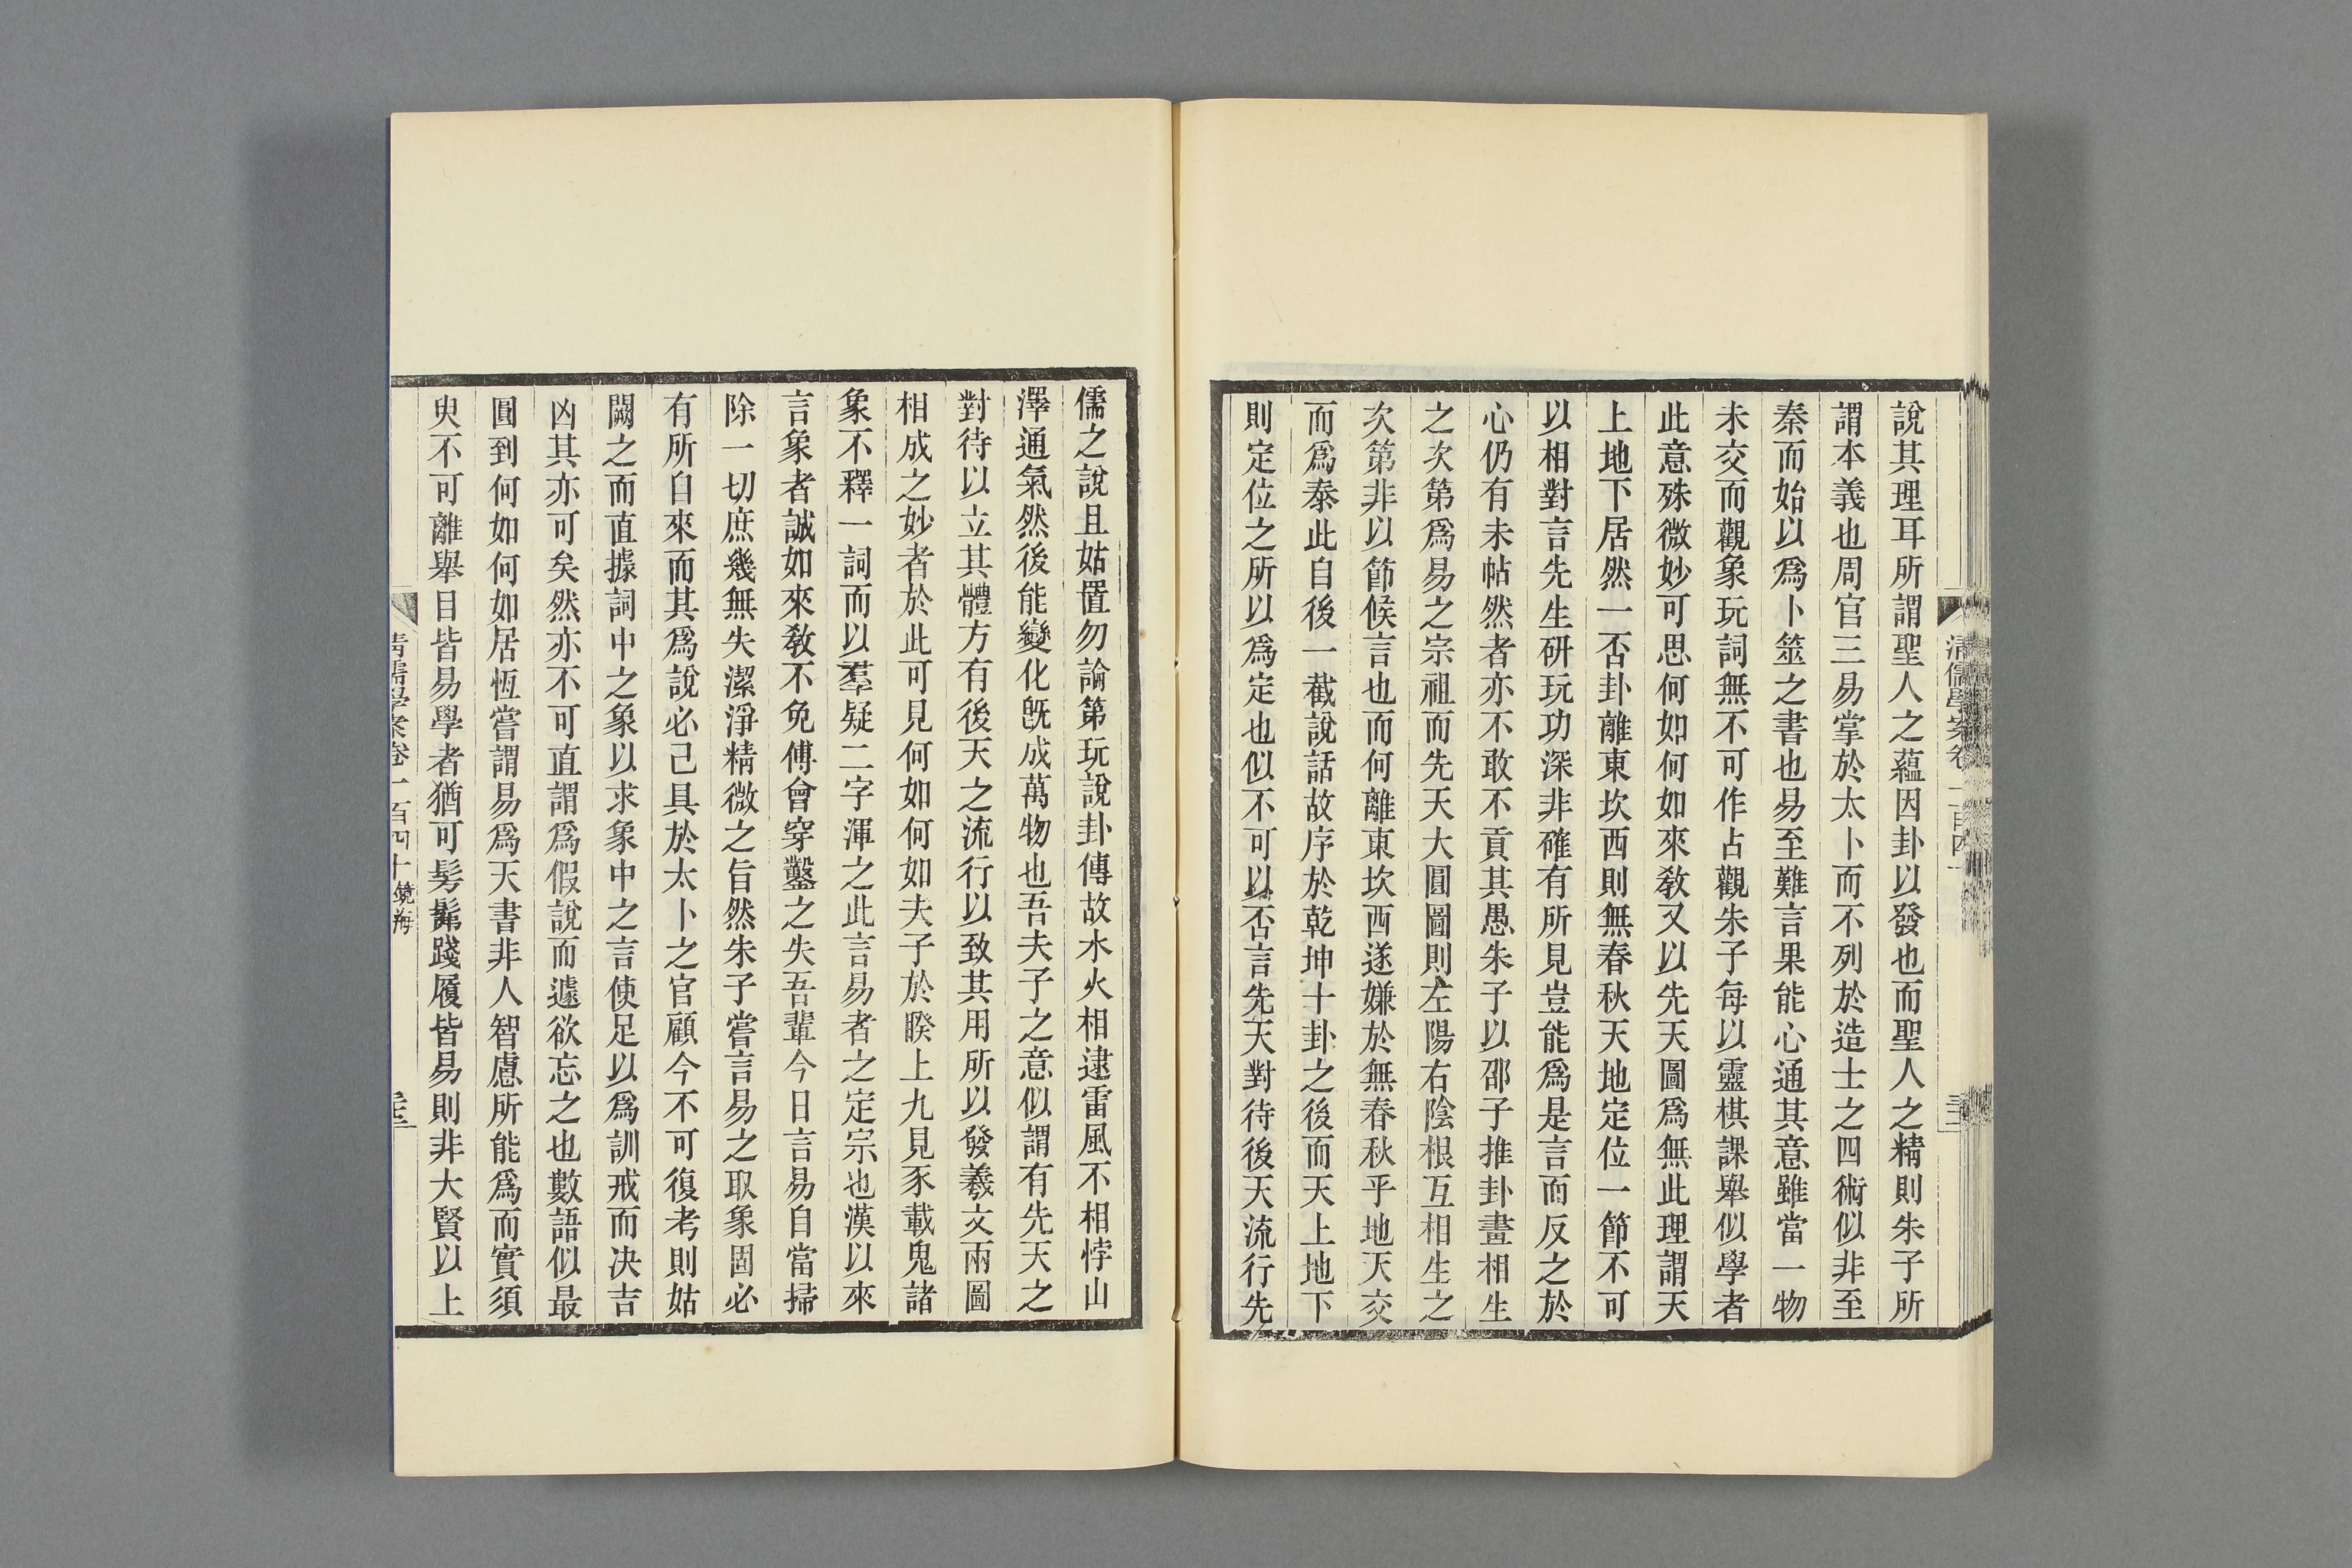 說其理耳所謂聖人之蘊因卦以發也而聖人之精則朱子所
謂本義也周官三易掌於太卜而不列於造士之四術似非至
秦而始以爲卜筮之書也易至難言果能心通其意雖當一物
未交而觀象玩詞無不可作占觀朱子每以靈棋課舉似學者
此意殊微妙可思何如何如來敎又以先天圖爲無此理謂天
上地下居然一否卦離東坎西則無春秋天地定位一節不可
以相對言先生研玩功深非確有所見豈能爲是言而反之於
心仍有未帖然者亦不敢不貢其愚朱子以邵子推卦畫相生
之次第爲易之宗祖而先天大圓圖則左陽右陰根互相生之
次第非以節候言也而何離東坎西遂嫌於無春秋乎地天交
而爲泰此自後一截說話故序於乾坤十卦之後而天上地下
則定位之所以爲定也似不可以否言先天對待後天流行先
儒之說且姑置勿論第玩說卦傳故水火相逮雷風不相悖山
澤通氣然後能變化旣成萬物也吾夫子之意似謂有先天之
對待以立其體方有後天之流行以致其用所以發羲文兩圖
相成之妙者於此可見何如何如夫子於睽上九見豕載鬼諸
象不釋一詞而以羣疑二字渾之此言易者之定宗也漢以來
言象者誠如來敎不免傅會穿鑿之失吾輩今日言易自當掃
除一切庶幾無失潔淨精微之旨然朱子嘗言易之取象固必
有所自來而其爲說必已具於太卜之官顧今不可復考則姑
闕之而直據詞中之象以求象中之言使足以爲訓戒而决吉
凶其亦可矣然亦不可直謂爲假說而遽欲忘之也數語似最
圓到何如何如居恆嘗謂易爲天書非人智慮所能爲而實須
臾不可離舉目皆易學者猶可髣髴踐履皆易則非大賢以上
清儒學案卷一百四十 鏡海